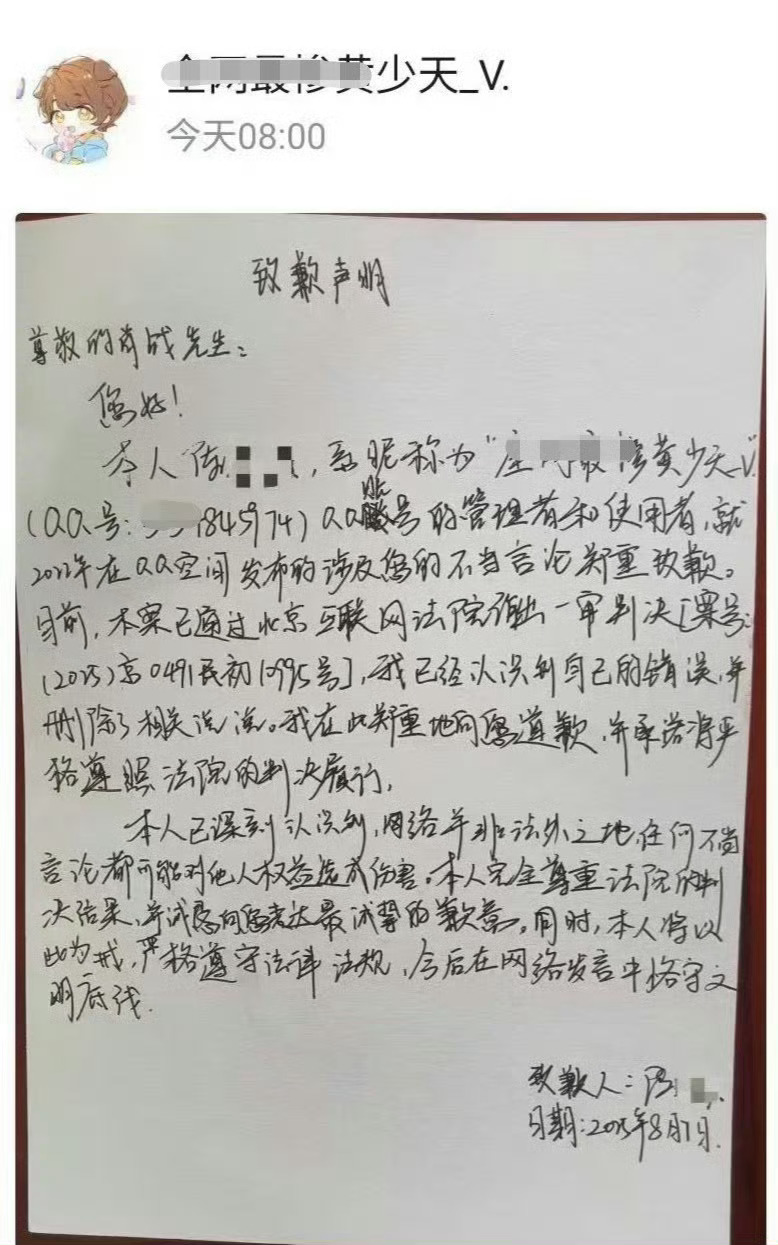 少天_V.
今天08:00
致歉声明
尊敬的肖战先生:
您好!
本人陈 , 系昵称为“ 黄少天_V.
(QQ号: 1845974)QQ账号的管理者和使用者,就
2022年在QQ空间发布的涉及您的不当言论郑重致歉。
目前,本案已通过北京互联网法院作出一审判决[案号:
(2025)京0491民初10995号],我已经认识到自己的错误,并
删除了相关说说。我在此郑重地向您道歉,并承诺将严
格遵照法院的判决履行。
本人已深刻认识到,网络并非法外之地,任何不当
言论都可能对他人权益造成伤害。本人完全尊重法院的判
决结果,并诚恳向您表达最诚挚的歉意。同时,本人将以
此为戒,严格遵守法律法规,今后在网络发言中恪守文
明底线.
致歉人:陈
日期:2025年8月7日.